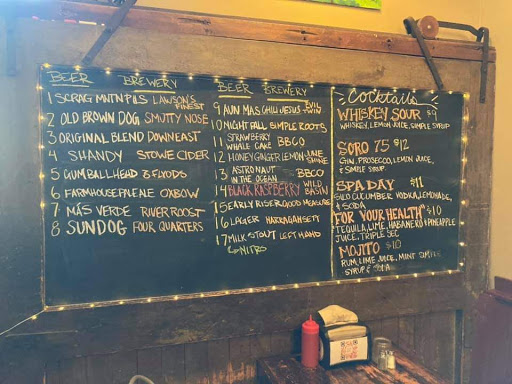 BEER BREWERY
1 SCRAG MNTN PILS LAWSON'S FINEST
2 OLD BROWN DOG SMUTTY NOSE
3 ORIGINAL BLEND DOWNEAST
4 SHANDY STOWE CIDER
5 GUMBALLHEAD 3 FLOYDS
6 FARMHOUSE PALE ALE OXBOW
7 MÁS VERDE RIVER ROOST
8 SUNDOG FOUR QUARTERS
BEER BREWERY
9 AUN MAS CHILI JESUS EVIL TWIN
10 NIGHT BALL SIMPLE ROOTS
11 STRAWBERRY WHALE CAKE BBCO
12 HONEY GINGER LEMON JUNESHINE
13 ASTRONAUT IN THE OCEAN BBCO
14 BLACK RASPBERRY WILD BASIN
15 EARLY RISER GOOD MEASURE
16 LAGER
17 MILK STOUT LEFT HAND
NITRO
Cocktails
WHISKEY SOUR $9
WHISKEY, LEMON JUICE, SIMPLE SYRUP
SORO 75 $12
GIN, PROSECCO, LEMON JUICE,
& SIMPLE SYRUP
SPA DAY $11
SILO CUCUMBER VODKA, LEMONADE,
& SODA
FOR YOUR HEALTH $10
TEQUILA, LIME, HABANERO & PINEAPPLE
JUICE, TRIPLE SEC
MOJITO $10
RUM, LIME JUICE, MINT SIMPLE
SYRUP & SODA